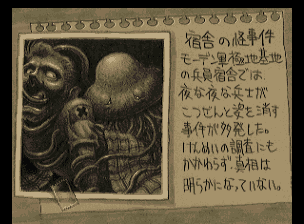 宿舎の怪事件
モーデン軍極地基地
の兵員宿舎では、
夜な夜な兵士が
こつぜんと姿を消す
事件が多発した。
けんめいの調査にも
かかわらず、真相は
明らかになっていない。